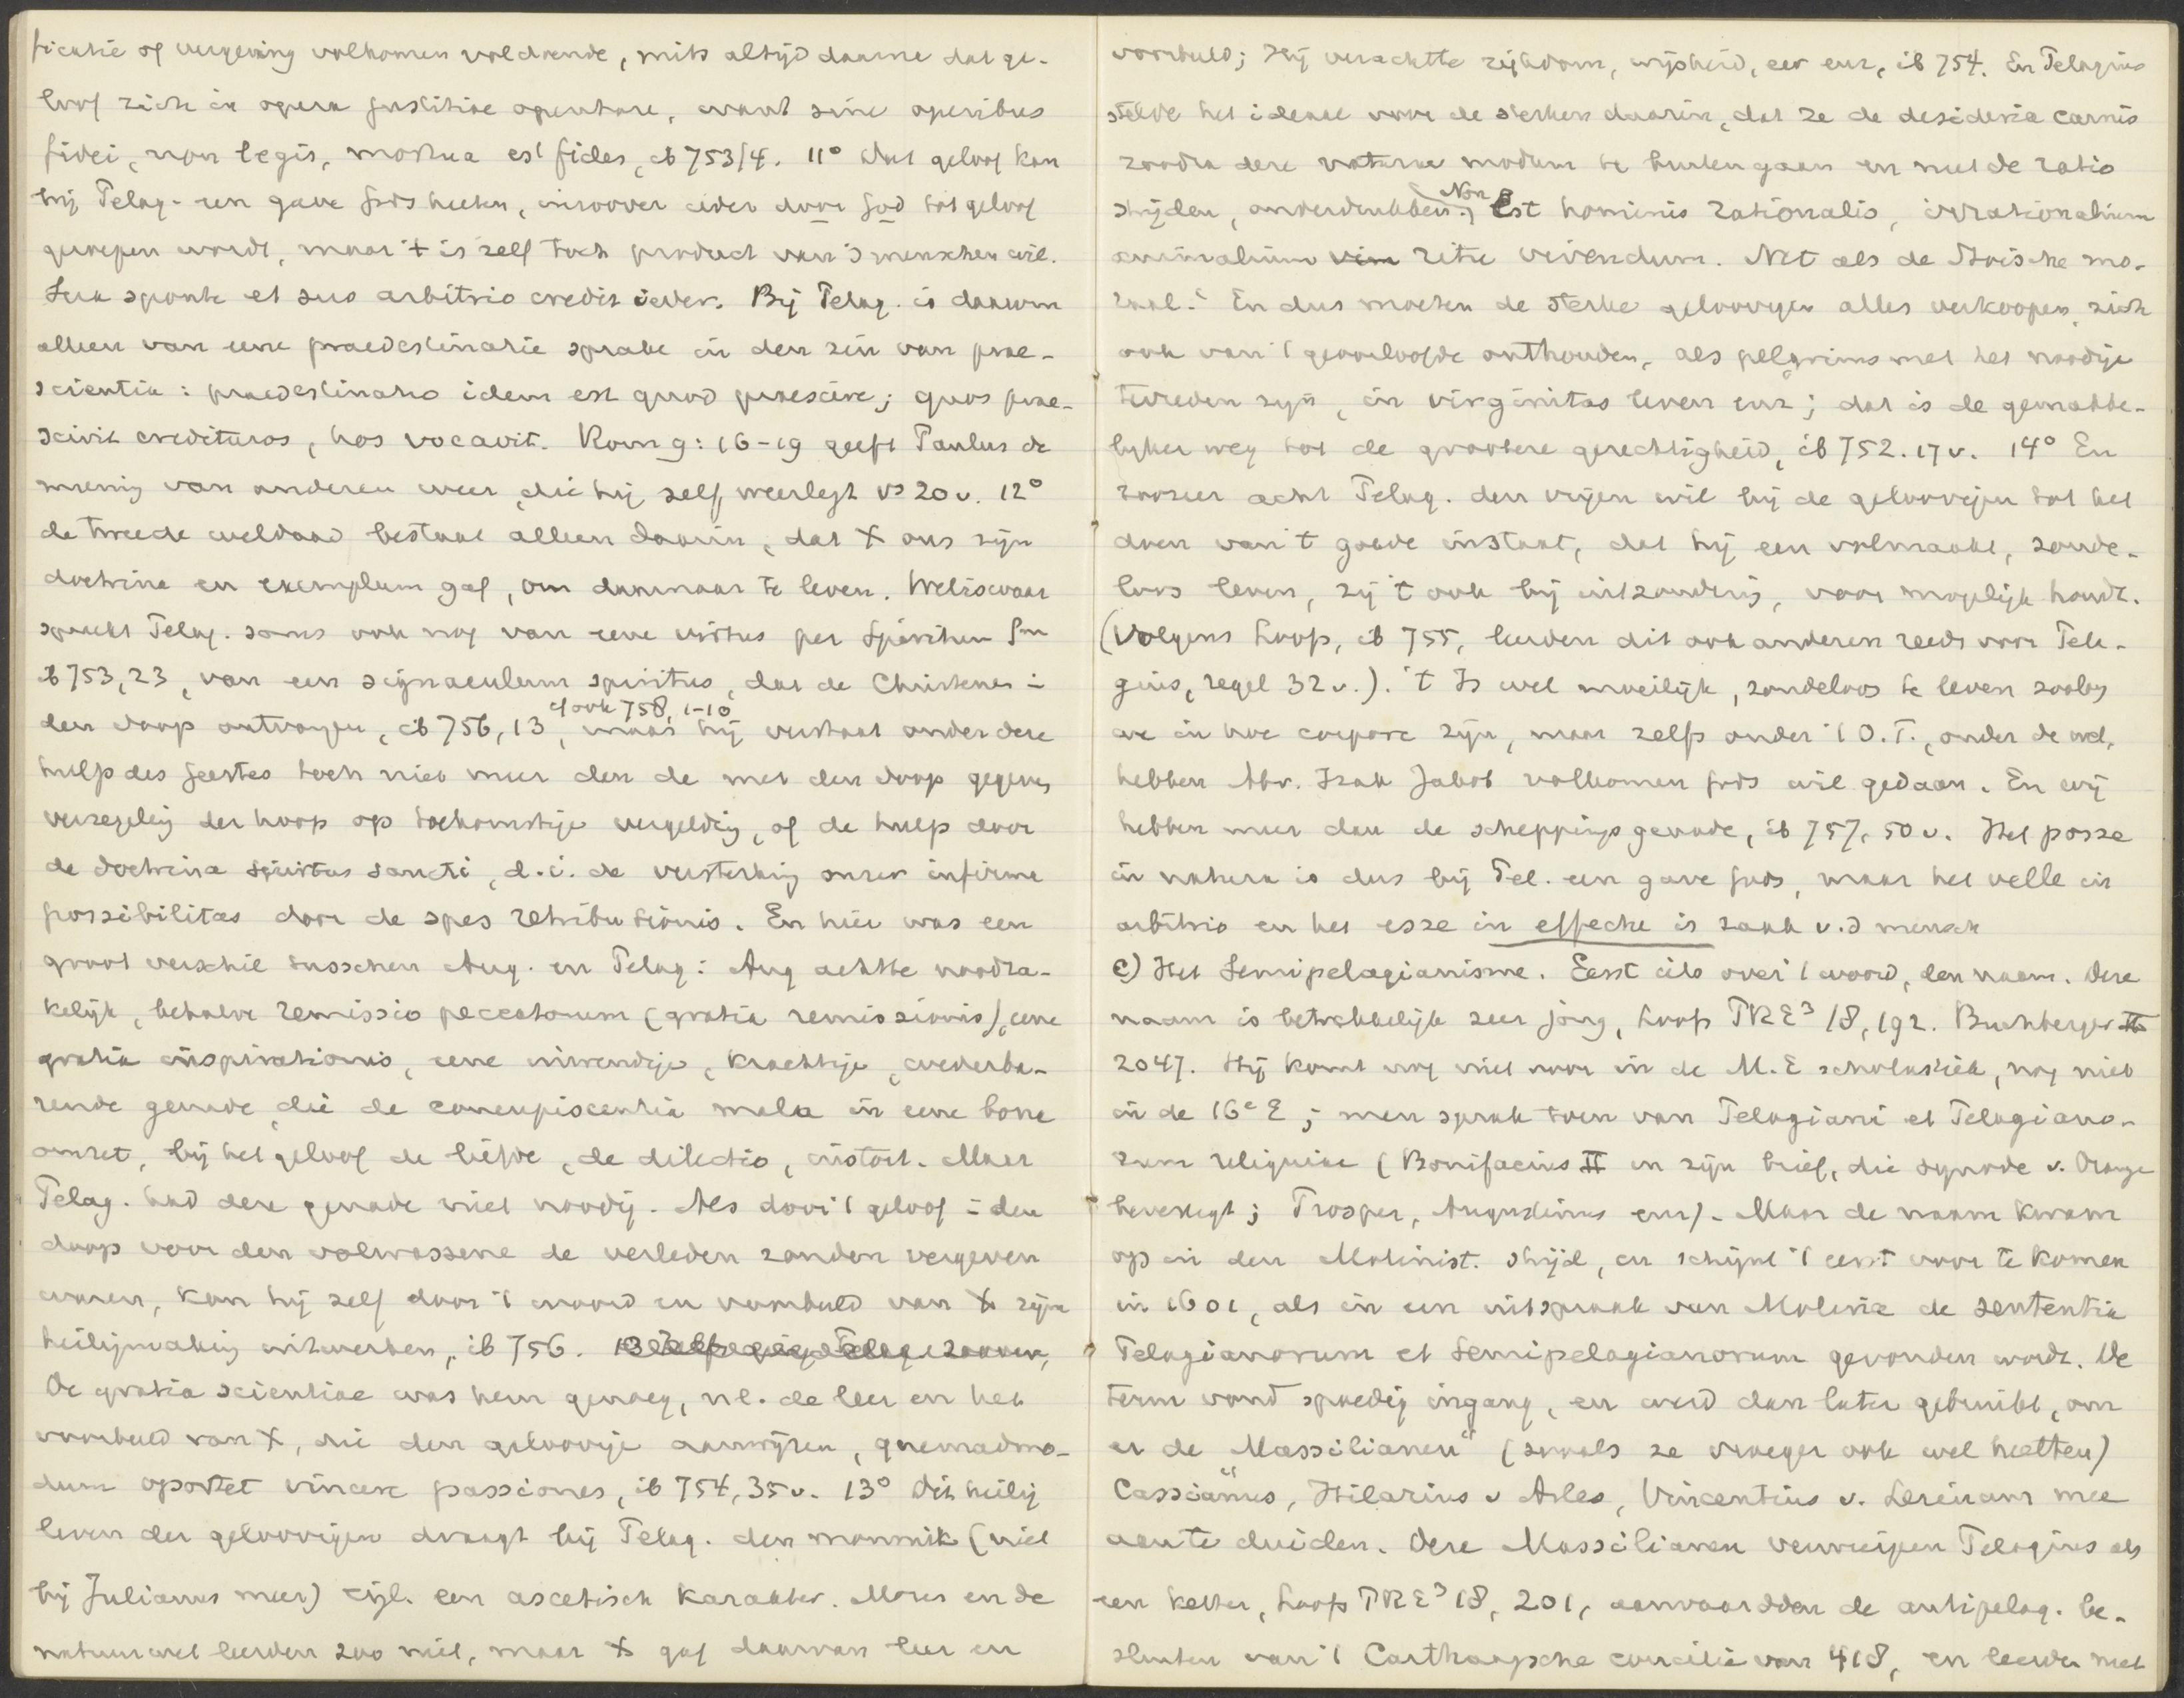 ficatie of vergeving volkomen voldoende, mits altijd daarna dat ge-
loof zich in opera justitiae openbare, want sine operibus
fidei, non legis, mortua est fides, ib 753/4. 11° Dat geloof kan
bij Pelag. een gave Gods heeten, inzoover ieder door God tot geloof
geroepen wordt, maar 't is zelf toch product van 's menschen wil.
Sua sponte et suo arbitrio credit ieder. Bij Pelag. is daarom
alleen van eene praedestinatie sprake in den zin van prae-
scientia: praedestinatio idem est quod praescire; quos prae-
scivit credituros, hos vocavit. Rom 9:16-19 geeft Paulus de
mening van anderen weer, die hij zelf weerlegt vs 20v. 12°
de tweede weldaad bestaat alleen daarin, dat X ons zijn
doctrina en exemplum gaf, om daarnaar te leven. Weliswaar
spreekt Pelag. soms ook nog van eene virtus per Spiritum Sm
ib 753,23, van een signaculum spiritus, dat de Christenen i
den doop ontvangen, ib 756,13, cf ook 758, 1-10 maar hij verstaat onder deze
hulp des Geestes toch niet meer dan de met den doop gegeven
verzegeling der hoop op toekomstige vergelding, of de hulp door
de doctrina spiritus sancti, d.i. de versterking onzer infirme
possibilitas door de spes retributionis. En hier was een
groot verschil tusschen Aug. en Pelag: Aug achtte noodza-
kelijk, behalve remissio peccatorum (gratia remissionis), eene
gratia inspirationis, eene inwendige, krachtige, wederba-
rende genade, die de concupiscentia mala in eene bona
omzet, bij het geloof de liefde, de dilectio, instort. Maar
Pelag. had deze genade niet noodig. Als door 't geloof i den
doop voor den volwassene de verleden zonden vergeven
waren, kan hij zelf door 't woord en voorbeeld van X zijn
heiligmaking uitwerken, ib 756.
De gratia scientiae was hem genoeg, nl. de leer en het
voorbeeld van X, die den geloovige aanwijzen, quemadmo-
dum oportet vincere passiones, ib 754,35v. 13° Dit heilig
leven der geloovigen draagt bij Pelag. den monnik (niet
bij Julianus meer) tzl. een ascetisch karakter. Mozes en de
natuurwet leerden zoo niet, maar X gaf daarvan leer en
voorbeeld; Hij verachtte rijkdom, wijsheid, eer enz, ib 754. En Pelagius
stelde het ideaal voor de sterken daarin, dat ze de desideria carnis
zoodra deze naturae modum te buiten gaan en met de ratio
strijden, onderdrukken; Non est hominis rationalis, irrationalium
animalium vim ritu vivendum. Net als de Stoische mo-
raal. En dus moeten de sterke geloovigen alles verkoopen, zich
ook van 't geoorloofde onthouden, als pelgrims met het noodige
tevreden zijn, in virginitas leven enz; dat is de gemakke-
lyker weg tot de grootere gerechtigheid, ib 752.17v. 14° En
zoozeer acht Pelag. den vrijen wil bij de geloovigen tot het
doen van 't goede instaat, dat hij een volmaakt, zonde-
loos leven, zij 't ook bij uitzondering, voor mogelijk houdt.
(Volgens Loofs, ib 755, leerden dit ook anderen reeds voor Pela-
gius, regel 32v.). 't Is wel moeilijk, zondeloos te leven zoolang
we in hoc corpore zijn, maar zelfs onder 't O.T., onder de wet,
hebben Abr. Izak Jakob volkomen Gods wil gedaan. En wij
hebben meer dan de scheppingsgenade, ib 757,50v. Het posse
in natura is dus bij Pel. een gave Gods, maar het velle in
arbitrio en het esse in effectu is zaak v.d mensch
c) Het Semipelagianisme. Eerst iets over 't woord, den naam. Deze
naam is betrekkelijk zeer jong, Loofs PRE³ 18,192. Buchberger II
2047. Hij komt nog niet voor in de M.E scholastiek, nog niet
in de 16e E; men sprak toen van Pelagiani et Pelagiano-
rum reliquiae (Bonifacius II in zijn brief, die synode v. Orange
bevestigt; Prosper, Augustinus enz). Maar de naam kwam
op in den Molinist. strijd, en schijnt 't eerst voor te komen
in 1601, als in een uitspraak van Molina de sententia
Pelagianorum et Semipelagianorum gevonden wordt. De
term vond spoedig ingang, en werd dan later gebruikt, om
er de „Massilianen" (zooals ze vroeger ook wel heetten)
Cassianus, Hilarius v Arles, Vincentius v. Lerinum mee
aan te duiden. Deze Massilianen verwerpen Pelagius als
een ketter, Loofs PRE³ 18, 201, aanvaardden de antipelag. be-
sluiten van 't Carthaagsche concilie van 418, en leerden met